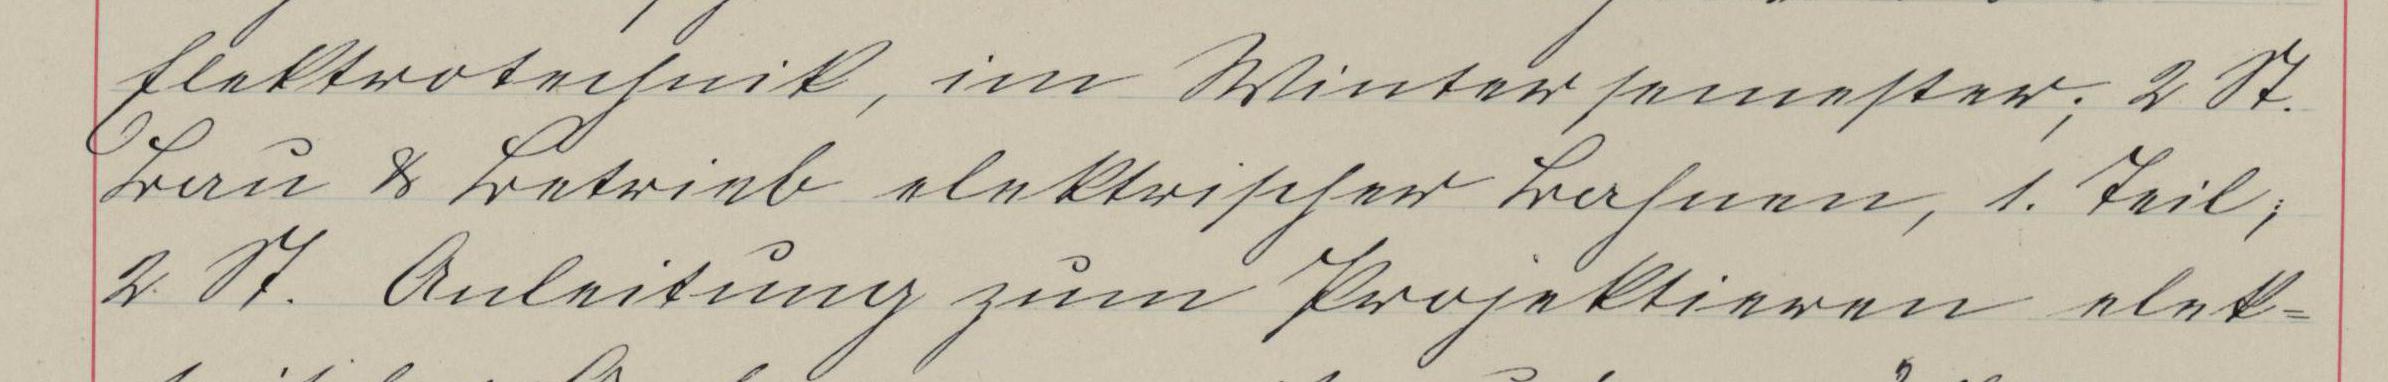 Elektrotechnik, im Wintersemester; 2 St.
Bau & Betrieb elektrischer Bahnen, 1. Teil;
2 St. Anleitung zum Projektieren elek-